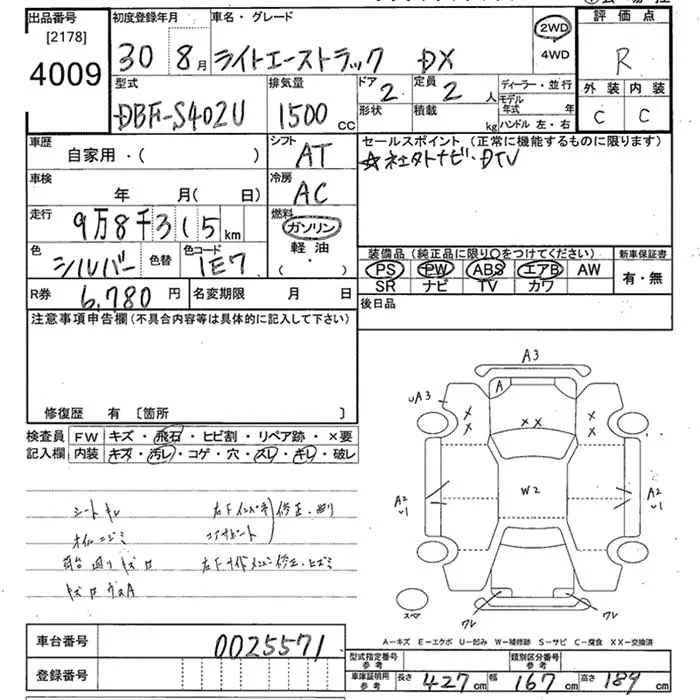 出品番号
[2178]
4009
初度登録年月
30 8月
車名・グレード
ライトエーストラック DX
2WD
4WD
評価点
R
外装 内装
C C
型式
DBF-S402U
排気量
1500 CC
ドア
2
定員
2 人
形状
積載
kg
ディーラー・並行
モデル年式 年
ハンドル 左・右
車歴
自家用・( )
シフト
AT
セールスポイント (正常に機能するものに限ります)
車検
年 月(日)
冷房
AC
走行
9万8千315 km
燃料
ガソリン
軽油
( ・ )
色
シルバー
色替
色コード
1E7
装備品(純正品に限り○をつけてください)
新車保証書
PS PW ABS エアB AW
SR ナビ TV カワ
有・無
R券
6,780 円
名変期限 月 日
後日品
注意事項申告欄(不具合内容等は具体的に記入して下さい)
修復歴 有 〔箇所 〕
検査員
記入欄
FW キズ・飛石・ヒビ割・リペア跡・×要
内装 キズ・汚レ・コゲ・穴・スレ・キレ・破レ
A3
A
uA3
W2
A2
u1
A2
u1
ワレ
ワレ
スペア
A−キズ E−エクボ U−凹み W−補修跡 S−サビ C−腐食 XX−交換済
車台番号
0025571
登録番号
型式指定番号
参考
類別区分番号
参考
車庫証明用
参考
長さ 427 cm 幅 167 cm 高さ 189 cm